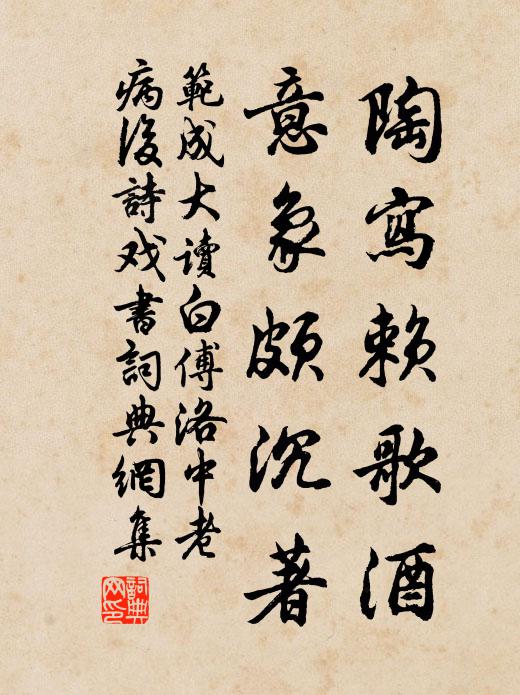 陶寫賴歌酒
意象頗沉著
範成大讀白傅洛中老
病後詩戏書詞典網集
詞典网印